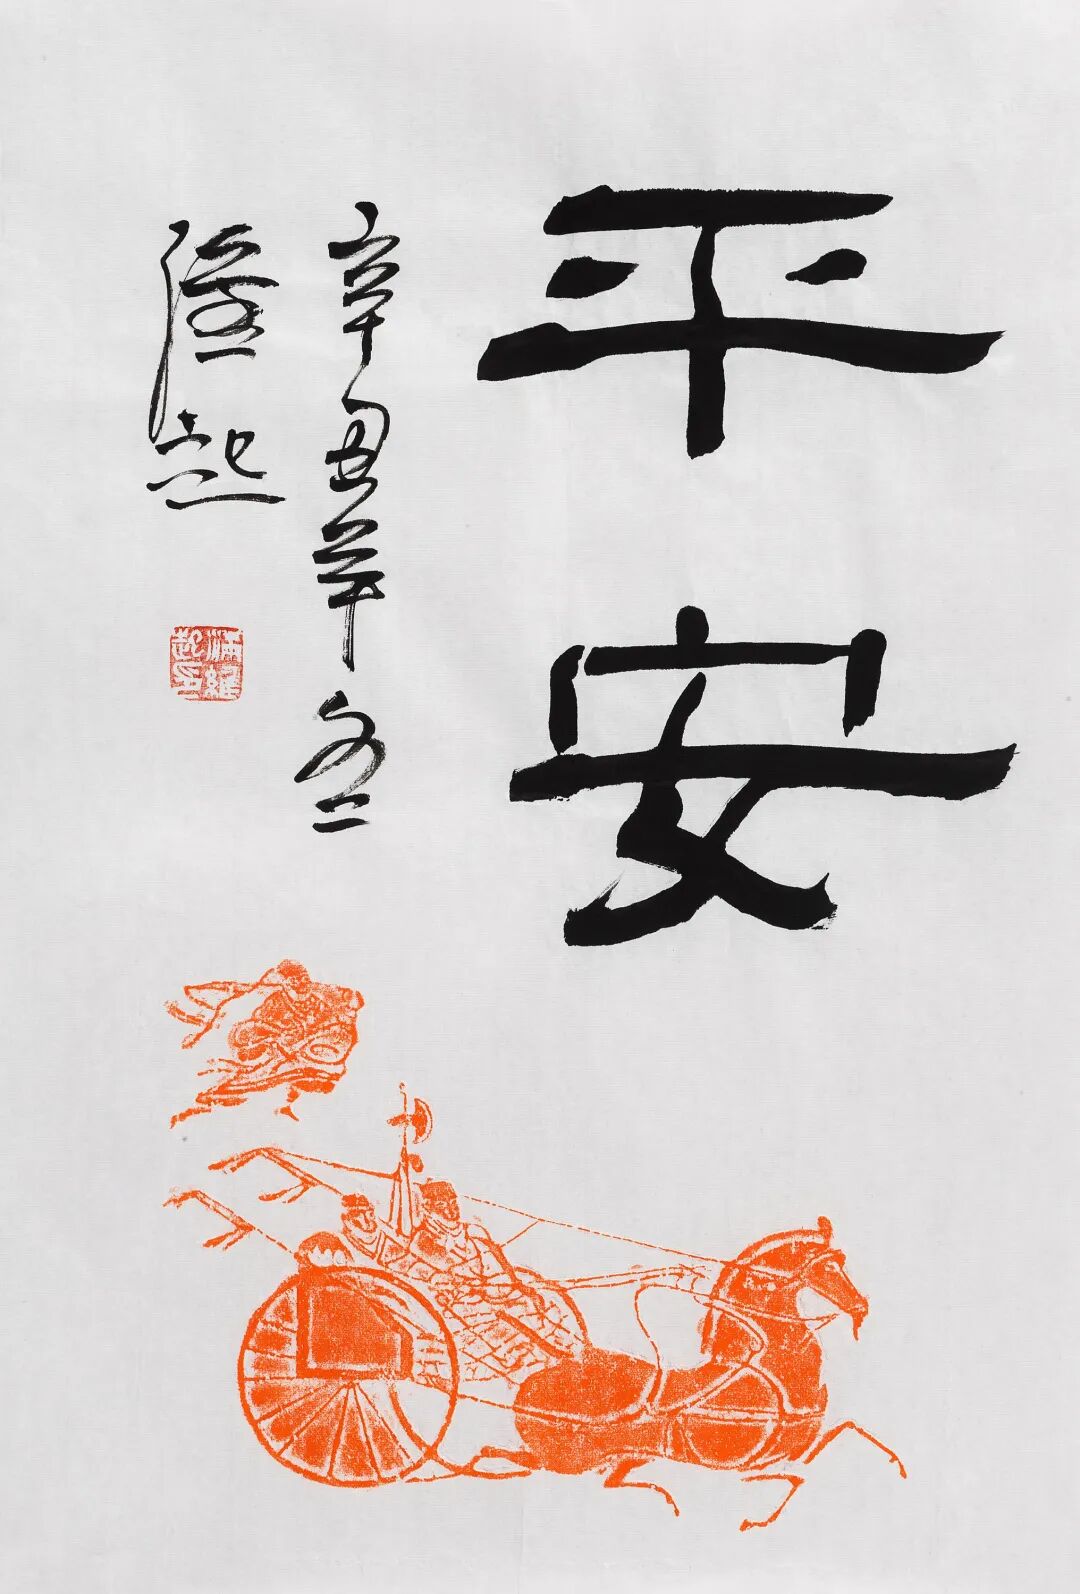 平安
辛丑年冬
隆起